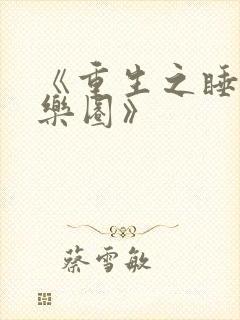 《重生之睡
樂園》
蔡雪敏